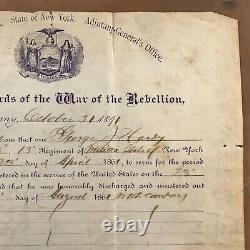 State of New York.
Adjutant-General's Office.
rds of the War of the Rebellion,
ny, October 31 1891
how that one George Hardy
13" Regiment of Militia State of New York
day of April 1861, to serve for the period
ustered in the service of the United States on the 23"
nd that he was honorably discharged and mustered out
day of August 1861 with company